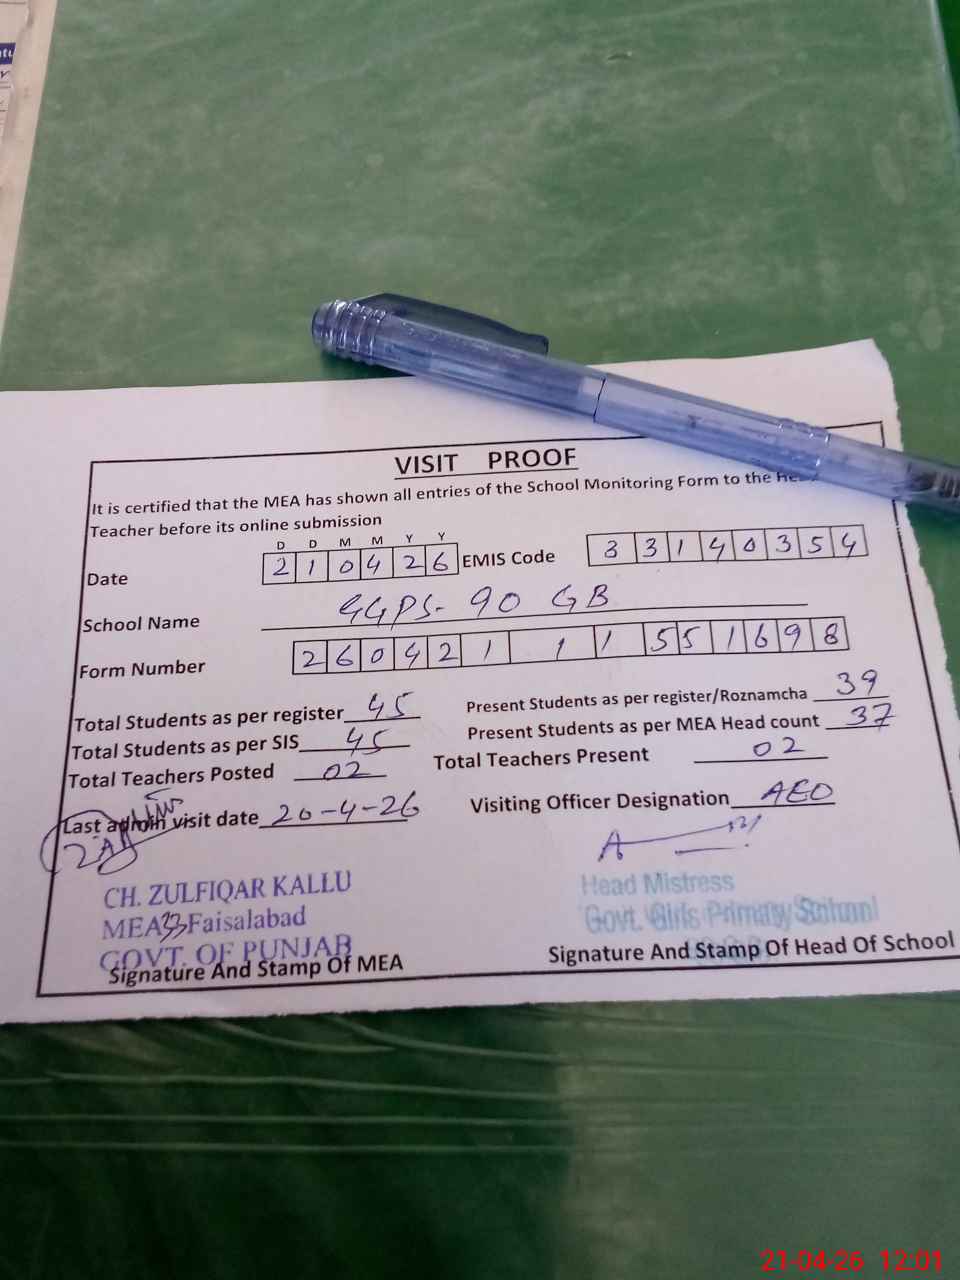 VISIT PROOF
It is certified that the MEA has shown all entries of the School Monitoring Form to the
Teacher before its online submission
D D M M Y Y
Date 2 1 0 4 2 6 EMIS Code 3 3 1 4 0 3 5 4
School Name GGPS- 90 GB
Form Number 2 6 0 4 2 1 1 1 5 5 1 6 9 8
Total Students as per register 45 Present Students as per register/Roznamcha 39
Total Students as per SIS 45 Present Students as per MEA Head count 37
Total Teachers Posted 02 Total Teachers Present 02
Last admin visit date 20-4-26 Visiting Officer Designation AEO
CH. ZULFIQAR KALLU
MEA 33 Faisalabad
GOVT. OF PUNJAB
Signature And Stamp Of MEA
Head Mistress
Govt. Girls Primary School
Signature And Stamp Of Head Of School
21-04-26 12:01